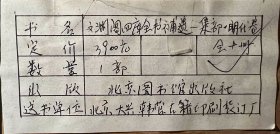 书名 文渊阁四库全书补遗—集部·明代卷
定价 3900元 全十册
数量 1部
出版 北京图书馆出版社
送书单位 北京大兴韩营古籍印刷装订厂